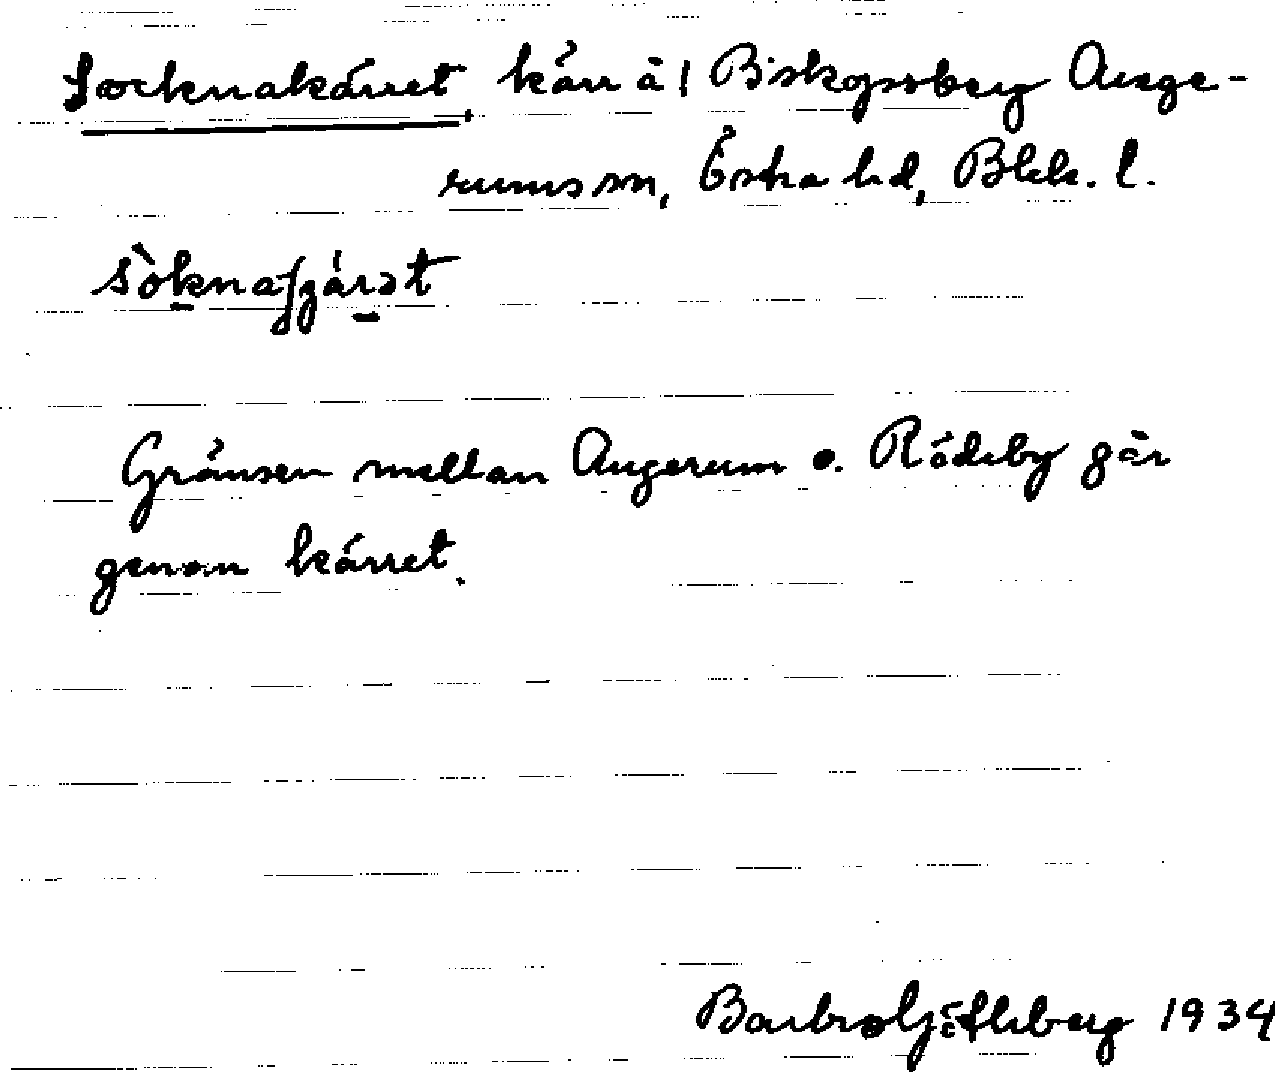 Socknakärret, kärr å 1 Biskopsberg Auge-
rums sn, Östra hd, Blek. l.
sòknaʃʒárət
Gränsen mellan Augerum o. Rödeby går
genom kärret.
Barbro 1934